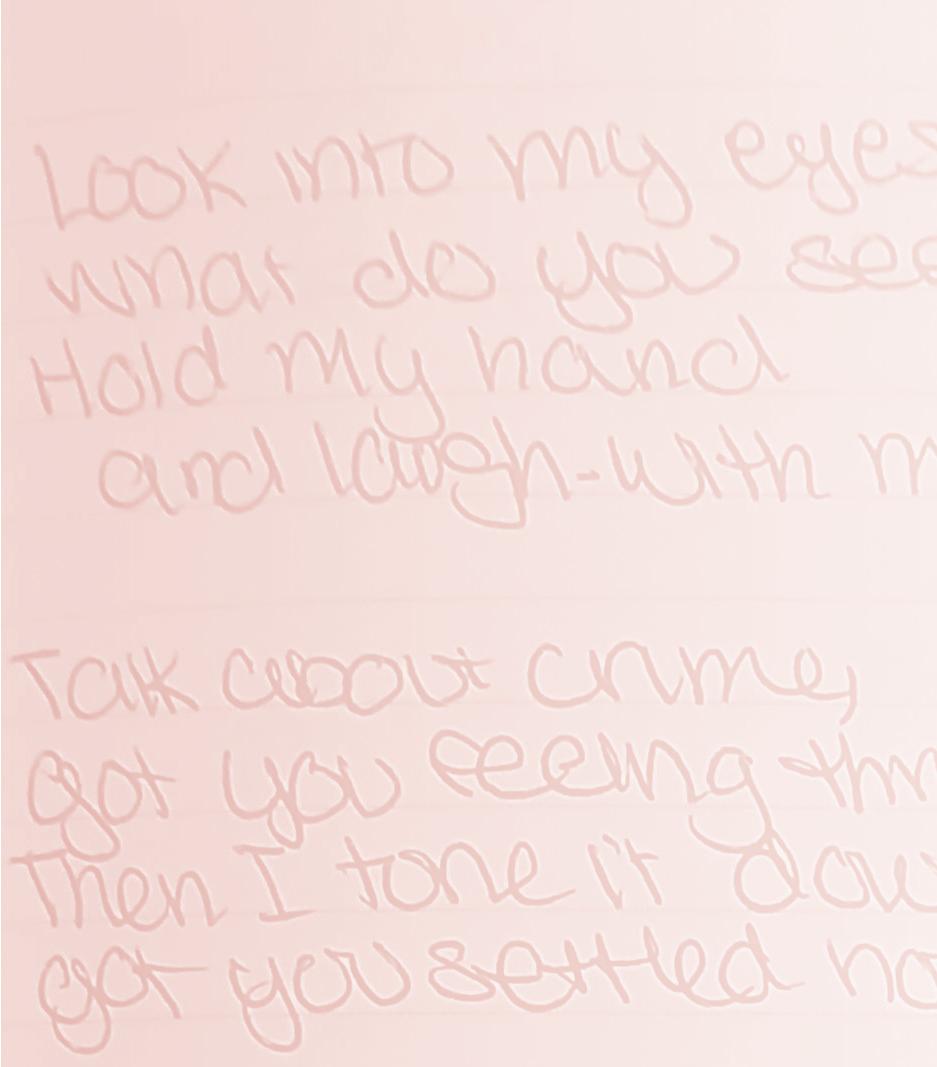 Look into my eyes
what do you see
Hold my hand
and laugh-with m
Talk about crime,
got you seeing thr
Then I tone it dow
got you settled no